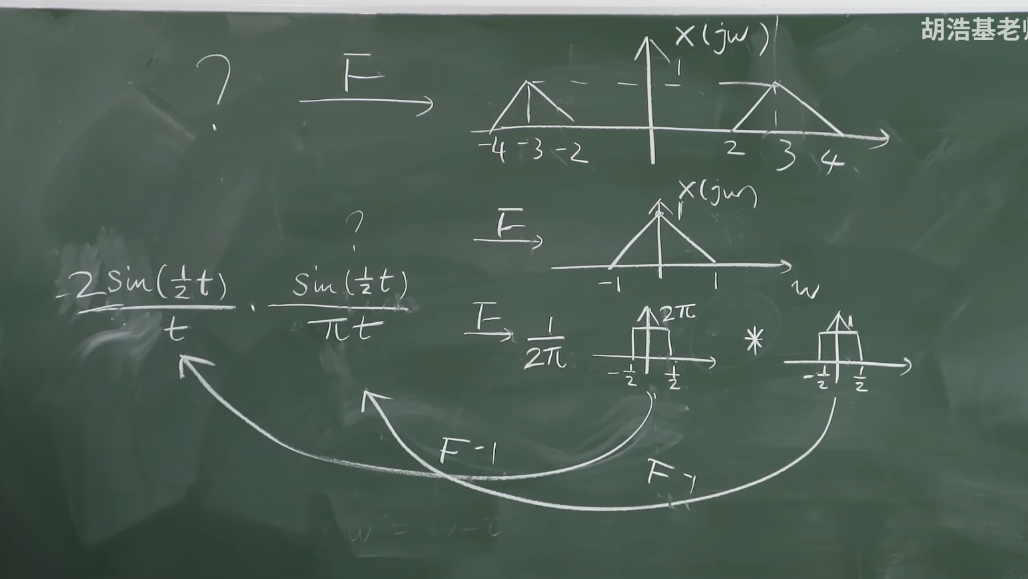 胡浩基老师
? F X(jω)
1
-4 -3 -2 2 3 4
? F X(jω)
1
-1 1 ω
2sin(½t)/t · sin(½t)/πt F 1/2π 2π * 1
-½ ½ -½ ½
F-1
F-1